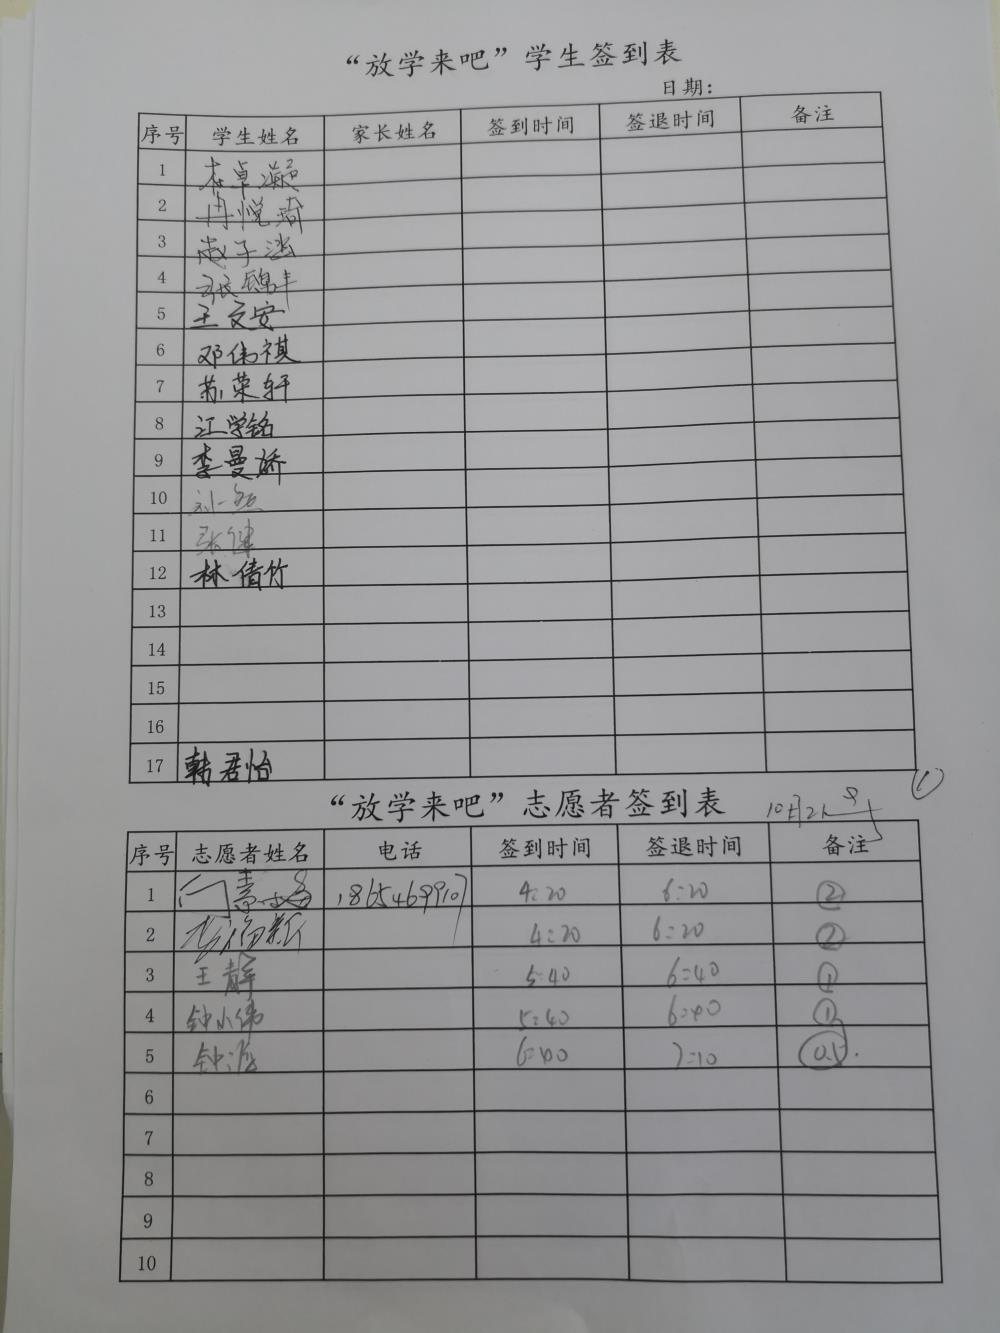 “放学来吧”学生签到表
日期：
序号 学生姓名 家长姓名 签到时间 签退时间 备注
1 李卓凝
2 冉悦琦
3 赵子涵
4 张锦丰
5 王文安
6 邓伟祺
7 苏荣轩
8 江学铭
9 李曼娇
10 刘一
11 张健
12 林倩竹
13
14
15
16
17 韩君怡
①
“放学来吧”志愿者签到表 10月21
序号 志愿者姓名 电话 签到时间 签退时间 备注
1 4:20 6:20 ②
2 4:20 6:20 ②
3 王静 5:40 6:40 ①
4 钟小伟 5:40 6:40 ①
5 钟 6:40 7:10 0.5
6
7
8
9
10